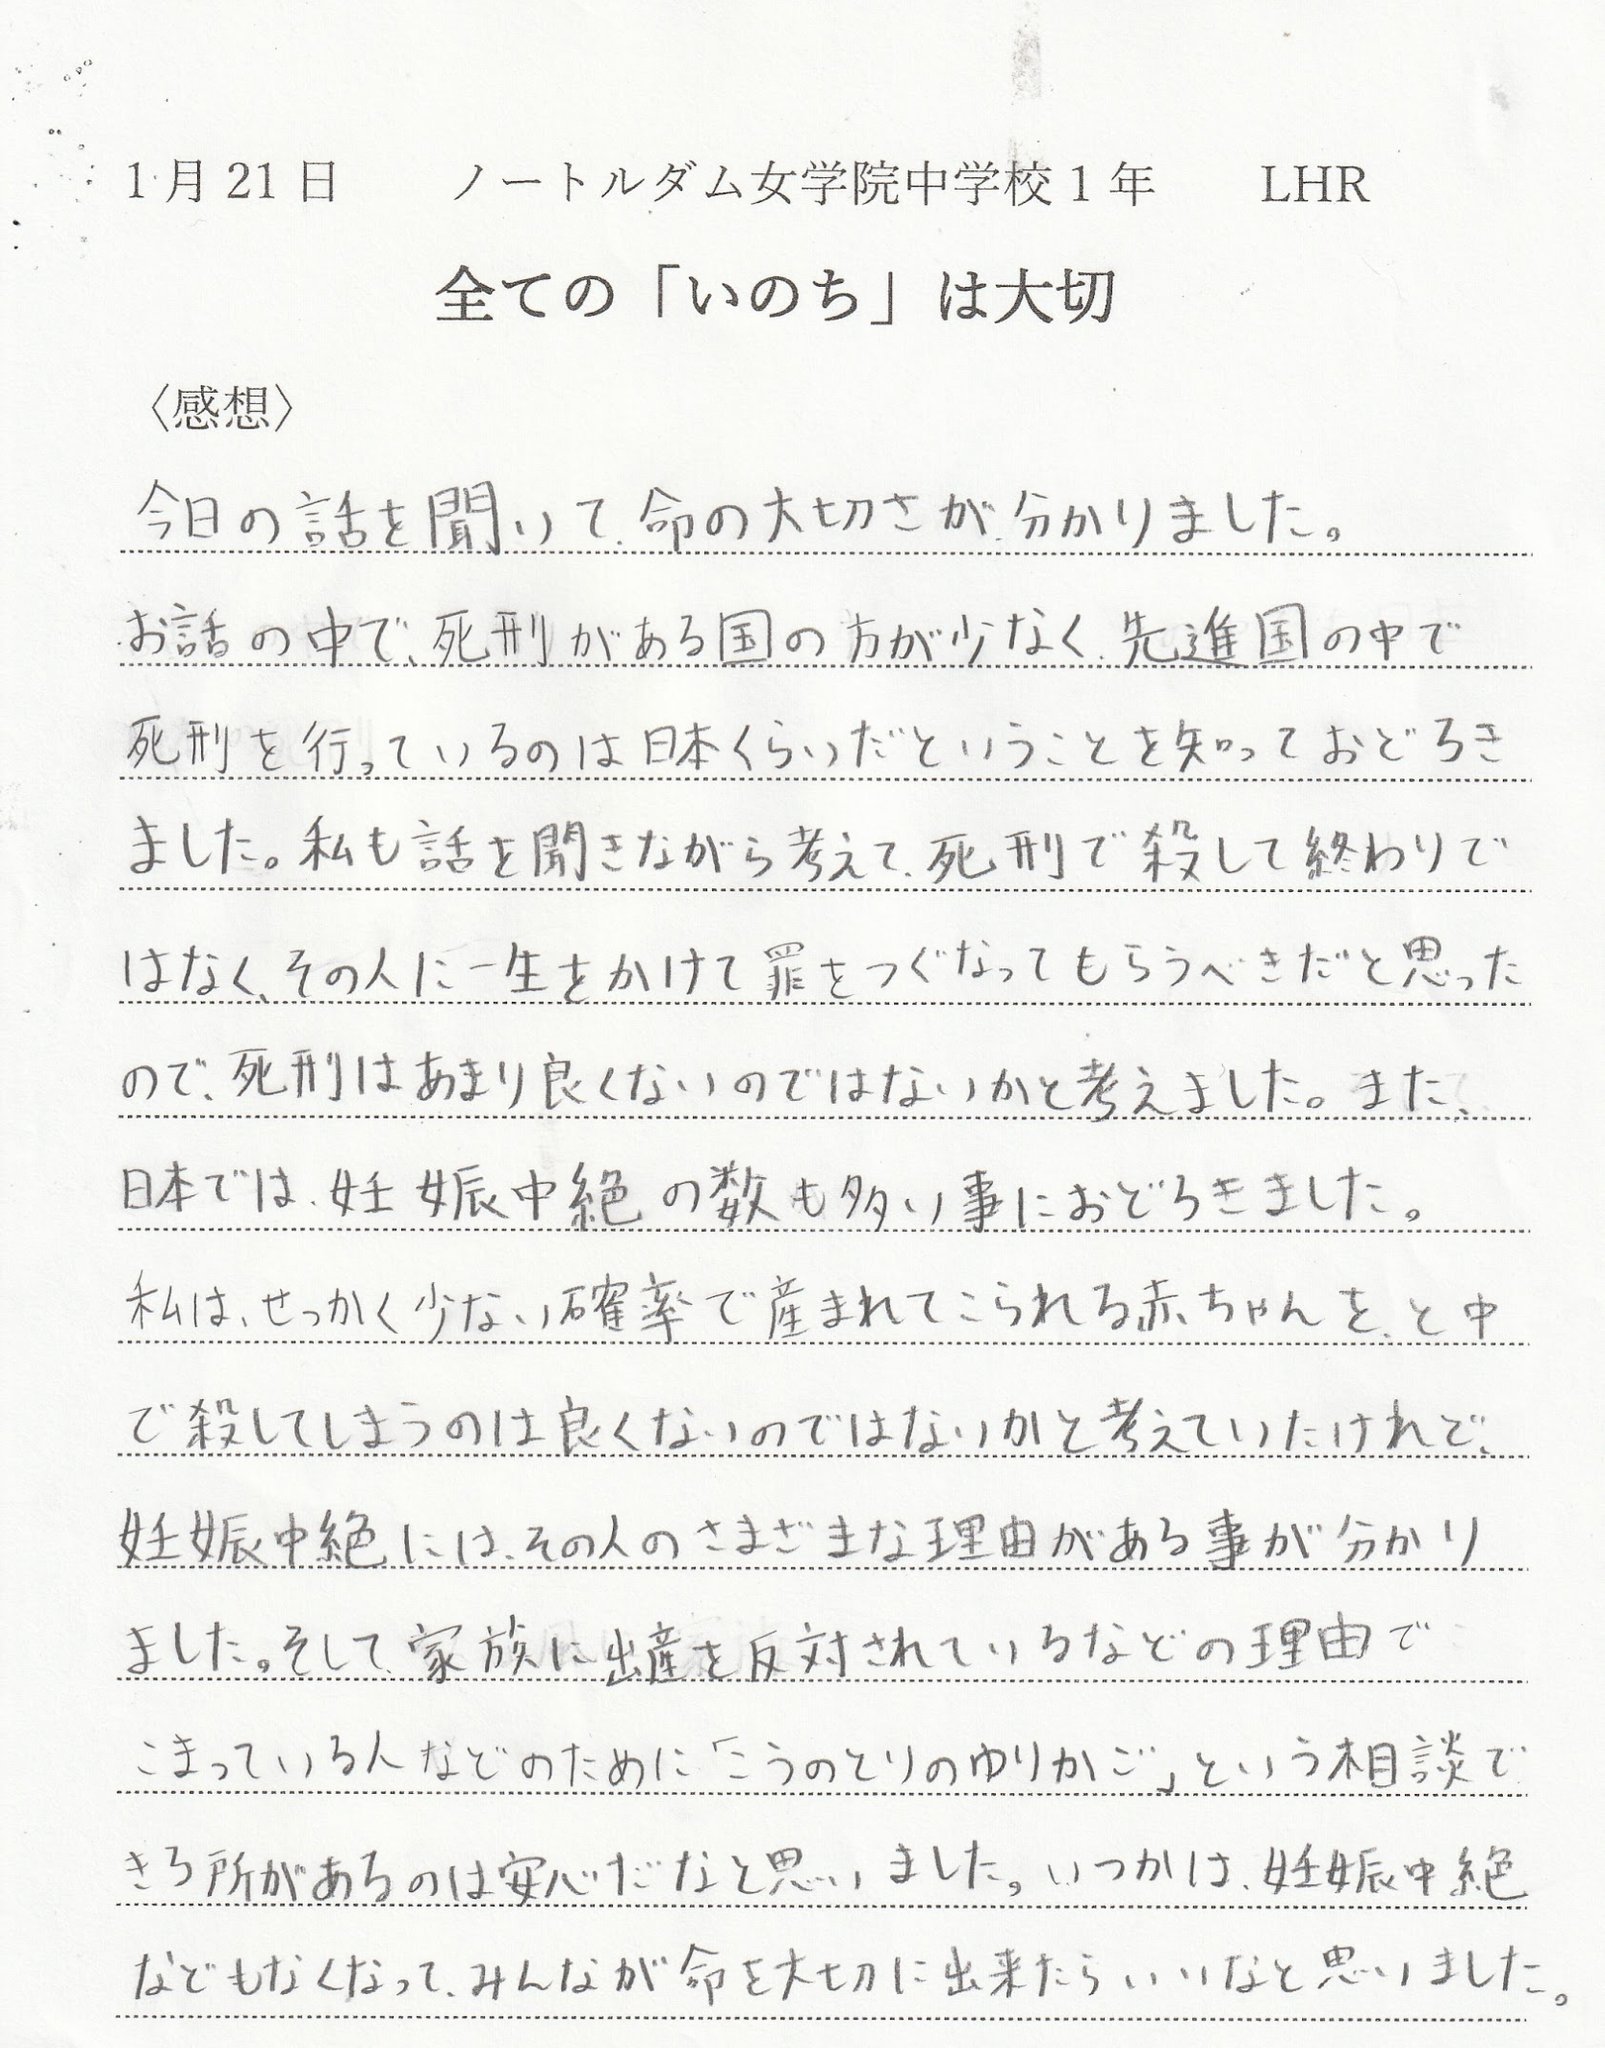 1月21日　ノートルダム女学院中学校1年　LHR
全ての「いのち」は大切
〈感想〉
今日の話を聞いて、命の大切さが、分かりました。
お話の中で、死刑がある国の方が少なく、先進国の中で
死刑を行っているのは日本くらいだということを知っておどろき
ました。私も話を聞きながら考えて、死刑で殺して終わりで
はなく、その人に一生をかけて罪をつぐなってもらうべきだと思った
ので、死刑はあまり良くないのではないかと考えました。また、
日本では、妊娠中絶の数も多い事におどろきました。
私は、せっかく少ない確率で産まれてこられる赤ちゃんを、と中
で殺してしまうのは良くないのではないかと考えていたけれど、
妊娠中絶には、その人のさまざまな理由がある事が分かり
ました。そして、家族に出産を反対されているなどの理由で
こまっている人などのために「こうのとりのゆりかご」という相談で
きる所があるのは安心だなと思いました。いつかは、妊娠中絶
などもなくなって、みんなが命を大切に出来たらいいなと思いました。